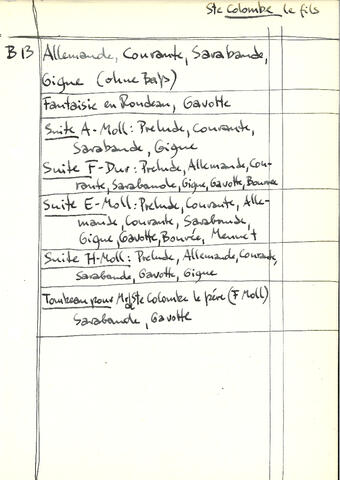 Ste Colombe le fils
BB Allemande, Courante, Sarabande,
Gigue (ohne Baß)
Fantaisie en Rondeau, Gavotte
Suite A-Moll: Prelude, Courante,
Sarabande, Gigue
Suite F-Dur: Prelude, Allemande, Cou-
rante, Sarabande, Gigue, Gavotte, Bourrée
Suite E-Moll: Prelude, Courante, Alle-
mande, Courante, Sarabande,
Gigue, Gavotte, Bourée, Menuet
Suite H-Moll: Prelude, Allemande, Courante,
Sarabande, Gavotte, Gigue
Tombeau pour Mr de Ste Colombe le père (F Moll)
Sarabande, Gavotte